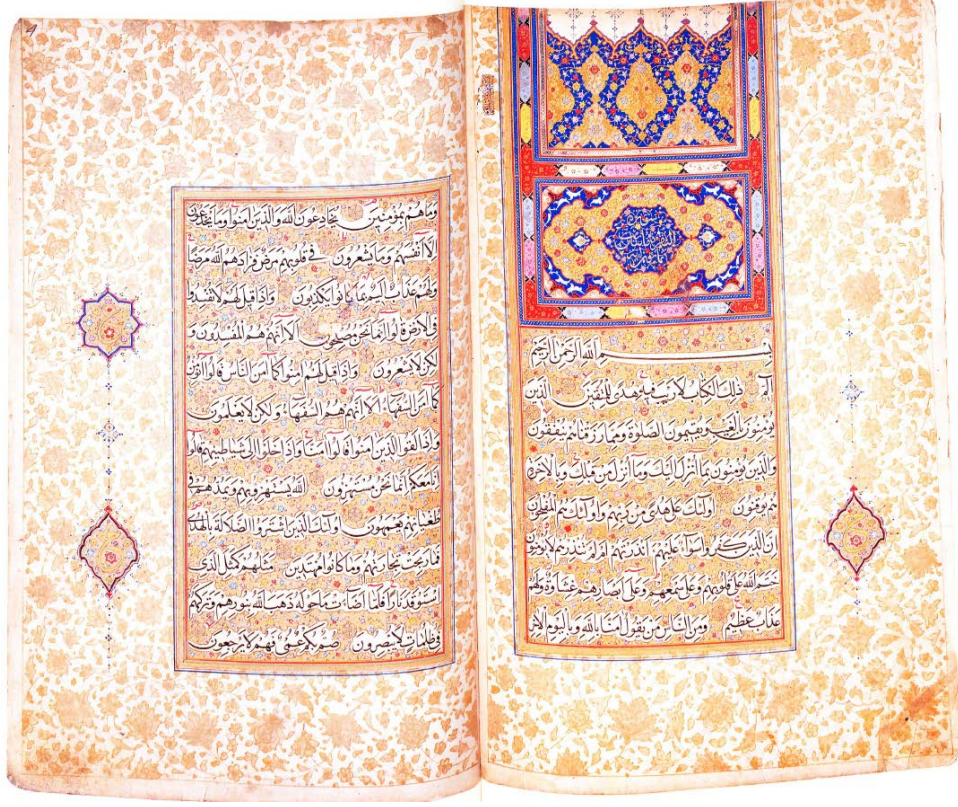 بسم الله الرحمن الرحيم
الم ذلك الكتاب لا ريب فيه هدى للمتقين الذين
يؤمنون بالغيب ويقيمون الصلوة ومما رزقناهم ينفقون
والذين يؤمنون بما انزل اليك وما انزل من قبلك وبالآخرة
هم يوقنون اولئك على هدى من ربهم واولئك هم المفلحون
ان الذين كفروا سواء عليهم ءانذرتهم ام لم تنذرهم لا يؤمنون
ختم الله على قلوبهم وعلى سمعهم وعلى ابصارهم غشاوة ولهم
عذاب عظيم ومن الناس من يقول امنا بالله وباليوم الآخر
وما هم بمؤمنين يخادعون الله والذين امنوا وما يخدعون
الا انفسهم وما يشعرون في قلوبهم مرض فزادهم الله مرضا
ولهم عذاب اليم بما كانوا يكذبون واذا قيل لهم لا تفسدوا
في الارض قالوا انما نحن مصلحون الا انهم هم المفسدون و
لكن لا يشعرون واذا قيل لهم امنوا كما امن الناس قالوا انؤمن
كما امن السفهاء الا انهم هم السفهاء ولكن لا يعلمون
واذا لقوا الذين امنوا قالوا امنا واذا خلوا الى شياطينهم قالوا
انا معكم انما نحن مستهزؤن الله يستهزئ بهم ويمدهم في
طغيانهم يعمهون اولئك الذين اشتروا الضلالة بالهدى
فما ربحت تجارتهم وما كانوا مهتدين مثلهم كمثل الذي
استوقد نارا فلما اضاءت ما حوله ذهب الله بنورهم وتركهم
في ظلمات لا يبصرون صم بكم عمي فهم لا يرجعون